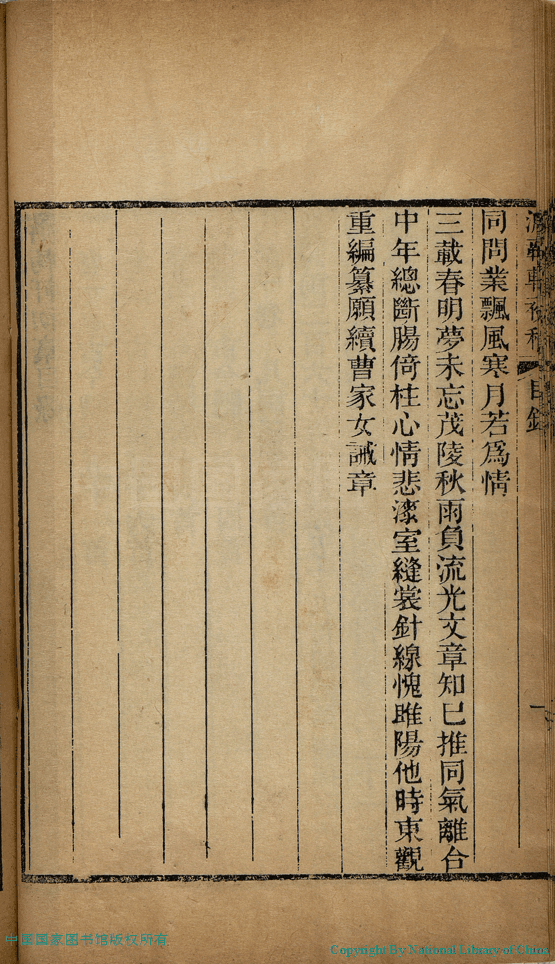 目錄
一
同問業飄風寒月若爲情
三載春明夢未忘茂陵秋雨負流光文章知已推同氣離合
中年總斷腸倚柱心情悲漆室縫裳針線愧睢陽他時東觀
重編纂願續曹家女誡章
中国国家图书馆版权所有
Copyright By National Library of China